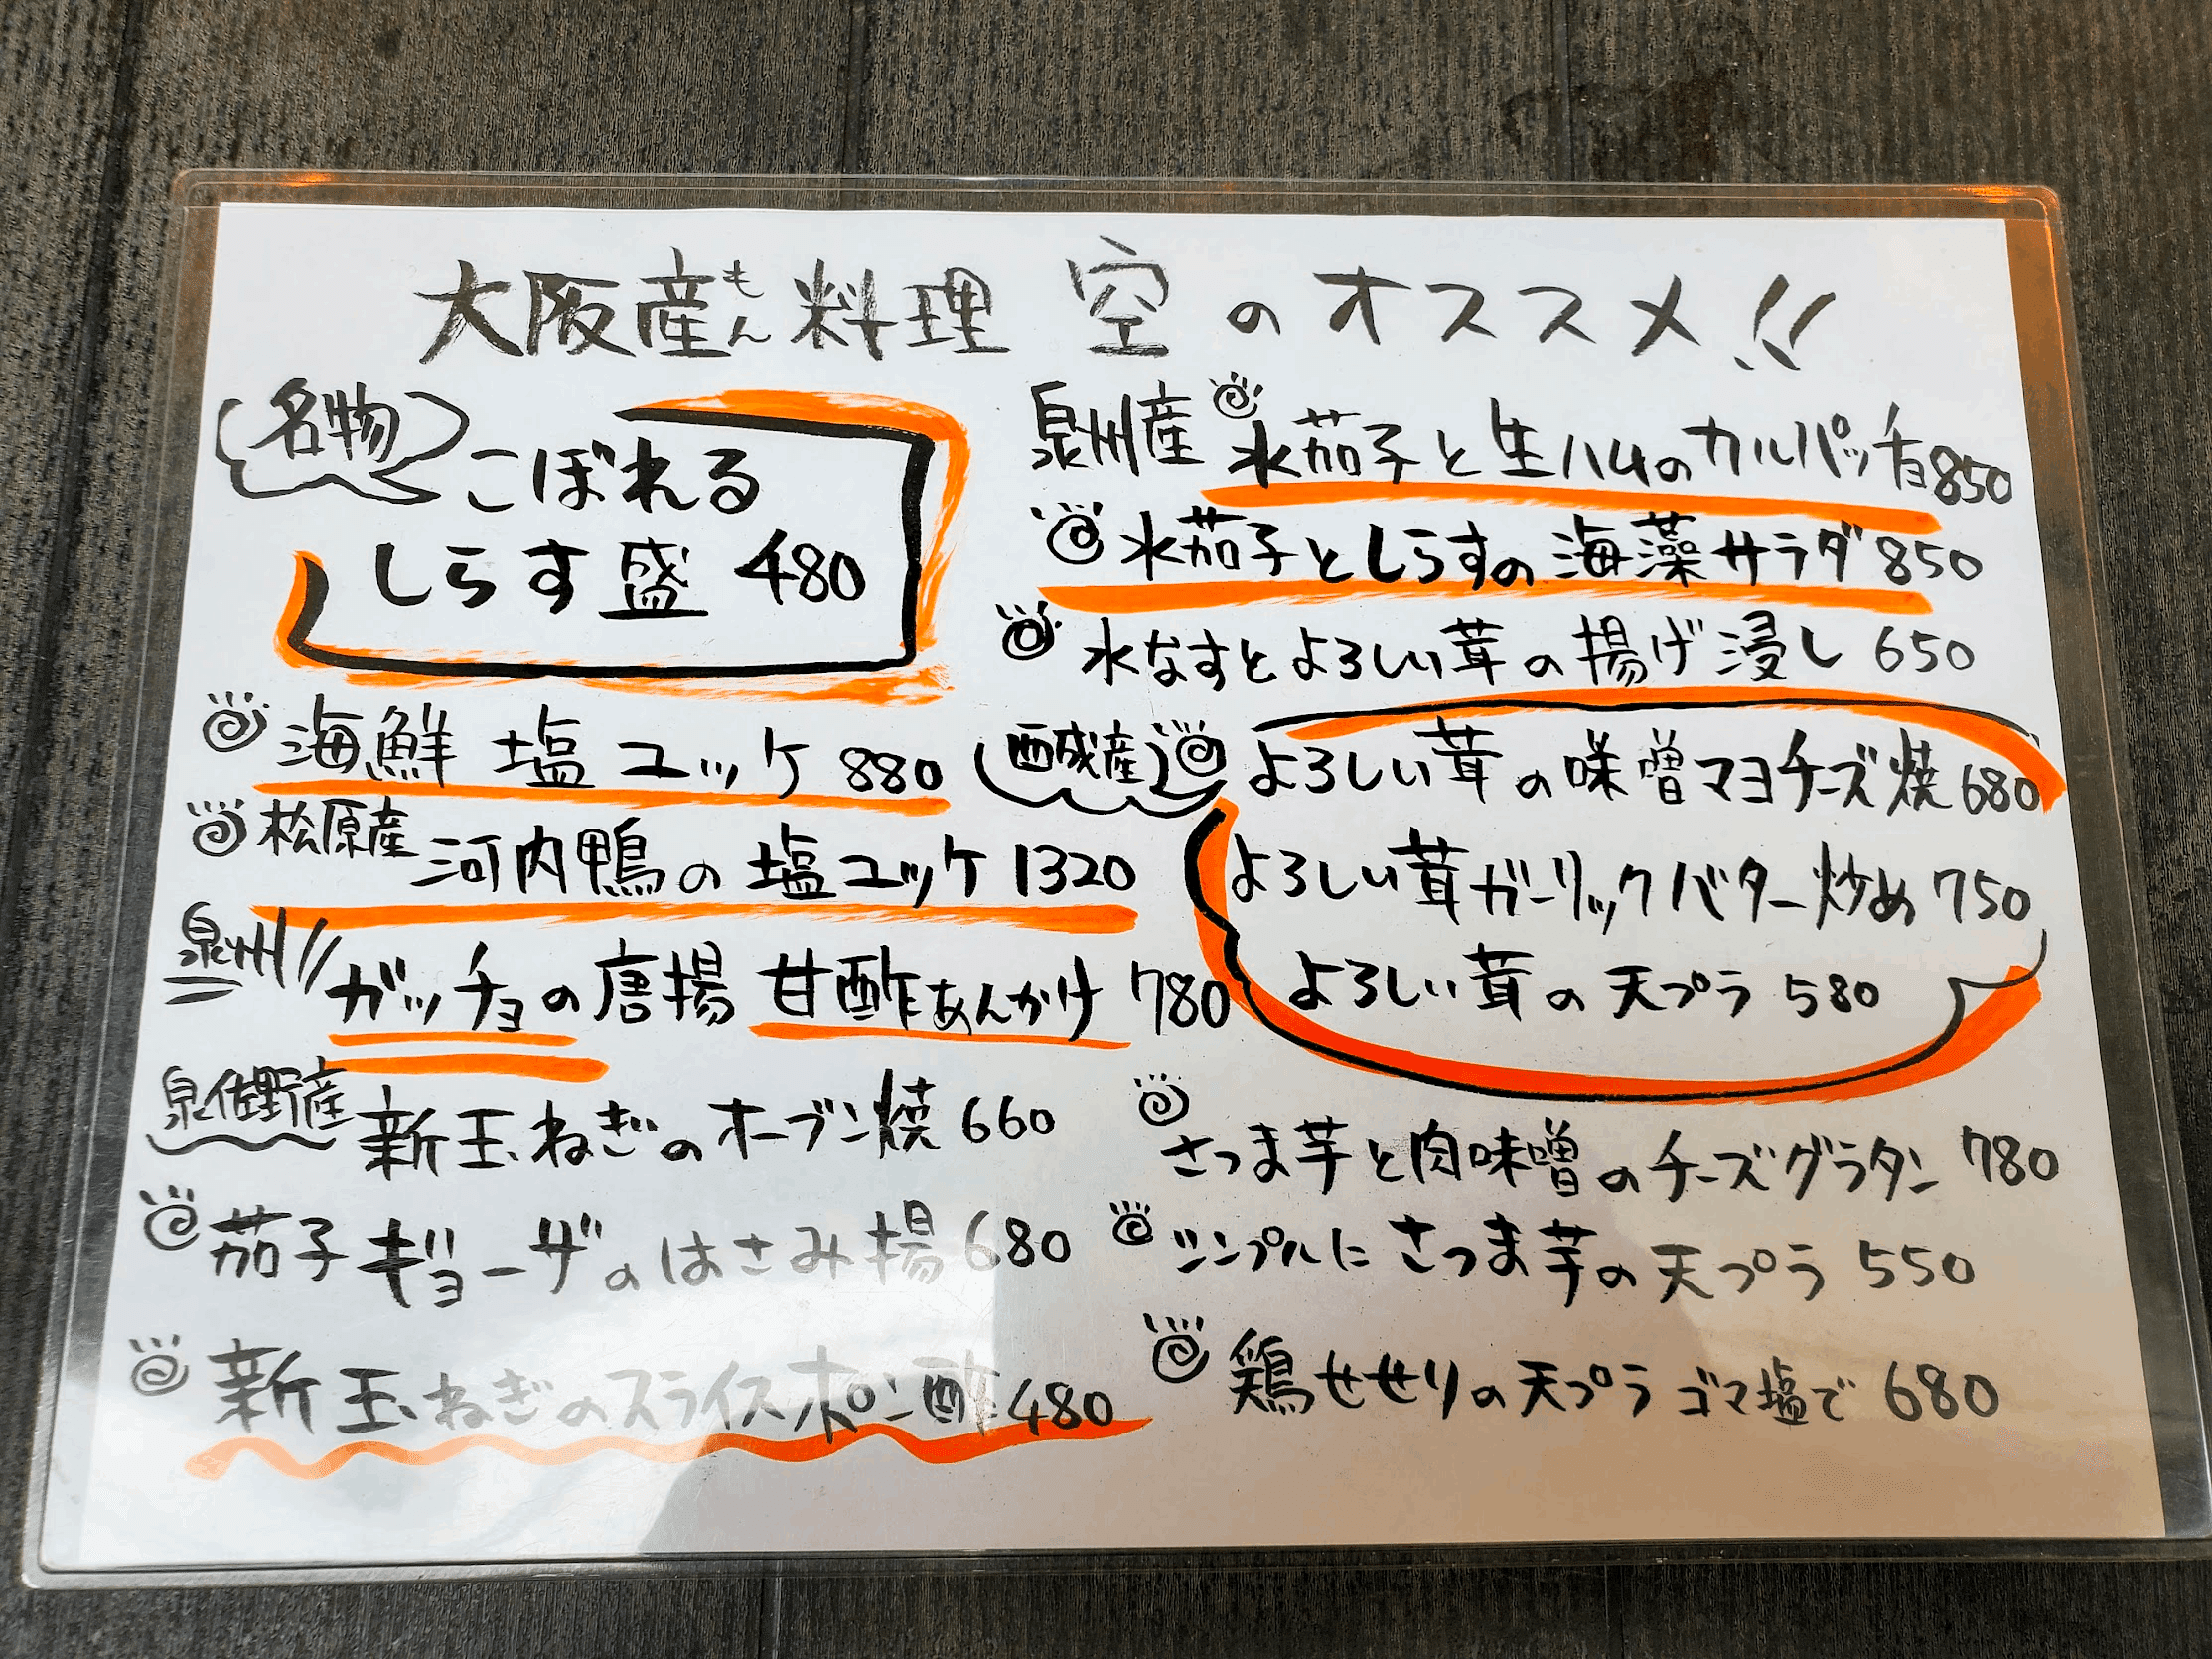 大阪産もん料理 空のオススメ!!
名物
こぼれる
しらす盛 480
海鮮 塩ユッケ 880
松原産 河内鴨の塩ユッケ 1320
泉州!! ガッチョの唐揚 甘酢あんかけ 780
泉佐野産 新玉ねぎのオーブン焼 660
茄子ギョーザのはさみ揚 680
新玉ねぎのスライスポン酢 480
泉州産 水茄子と生ハムのカルパッチョ 850
水茄子としらすの海藻サラダ 850
水なすとよろしい茸の揚げ浸し 650
西成産 よろしい茸の味噌マヨチーズ焼 680
よろしい茸ガーリックバター炒め 750
よろしい茸の天プラ 580
さつま芋と肉味噌のチーズグラタン 780
シンプルにさつま芋の天プラ 550
鶏せせりの天プラ ゴマ塩で 680